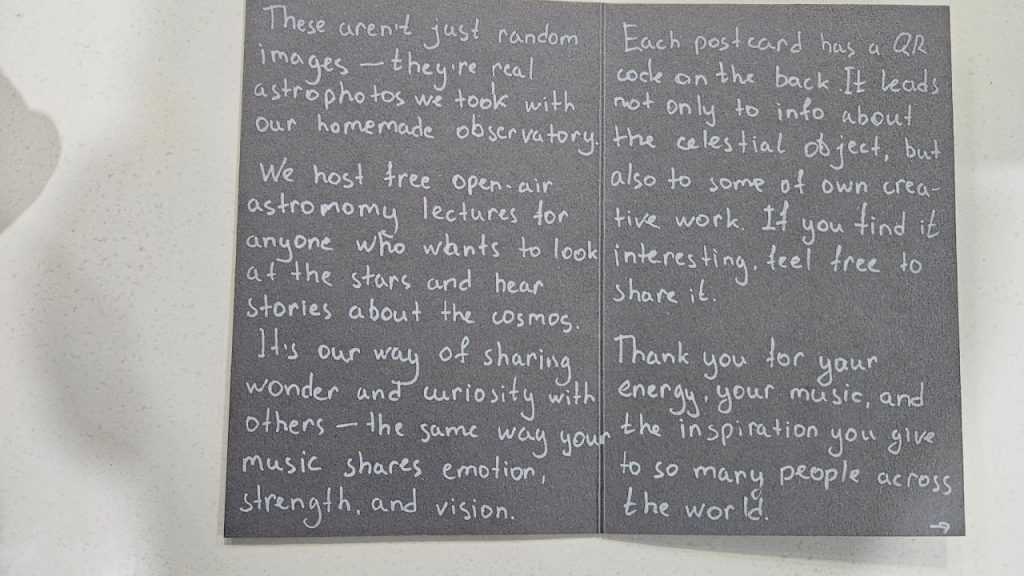 These aren't just random
images — they're real
astrophotos we took with
our homemade observatory.
We host free open-air
astronomy lectures for
anyone who wants to look
at the stars and hear
stories about the cosmos.
It's our way of sharing
wonder and curiosity with
others — the same way your
music shares emotion,
strength, and vision.
Each postcard has a QR
code on the back It leads
not only to info about
the celestial object, but
also to some of own crea-
tive work. If you find it
interesting, feel free to
share it.
Thank you for your
energy, your music, and
the inspiration you give
to so many people across
the world.
→